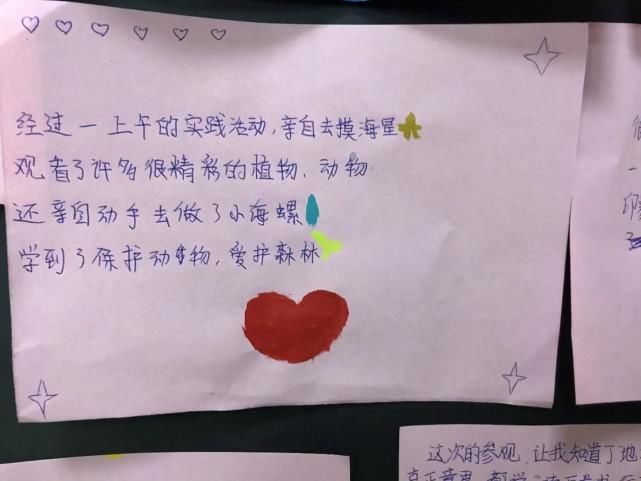 经过一上午的实践活动,亲自去摸海星
观看了许多很精彩的植物、动物
还亲自动手去做了小海螺
学到了保护动物,爱护森林
一
这次的参观,让我知道了地